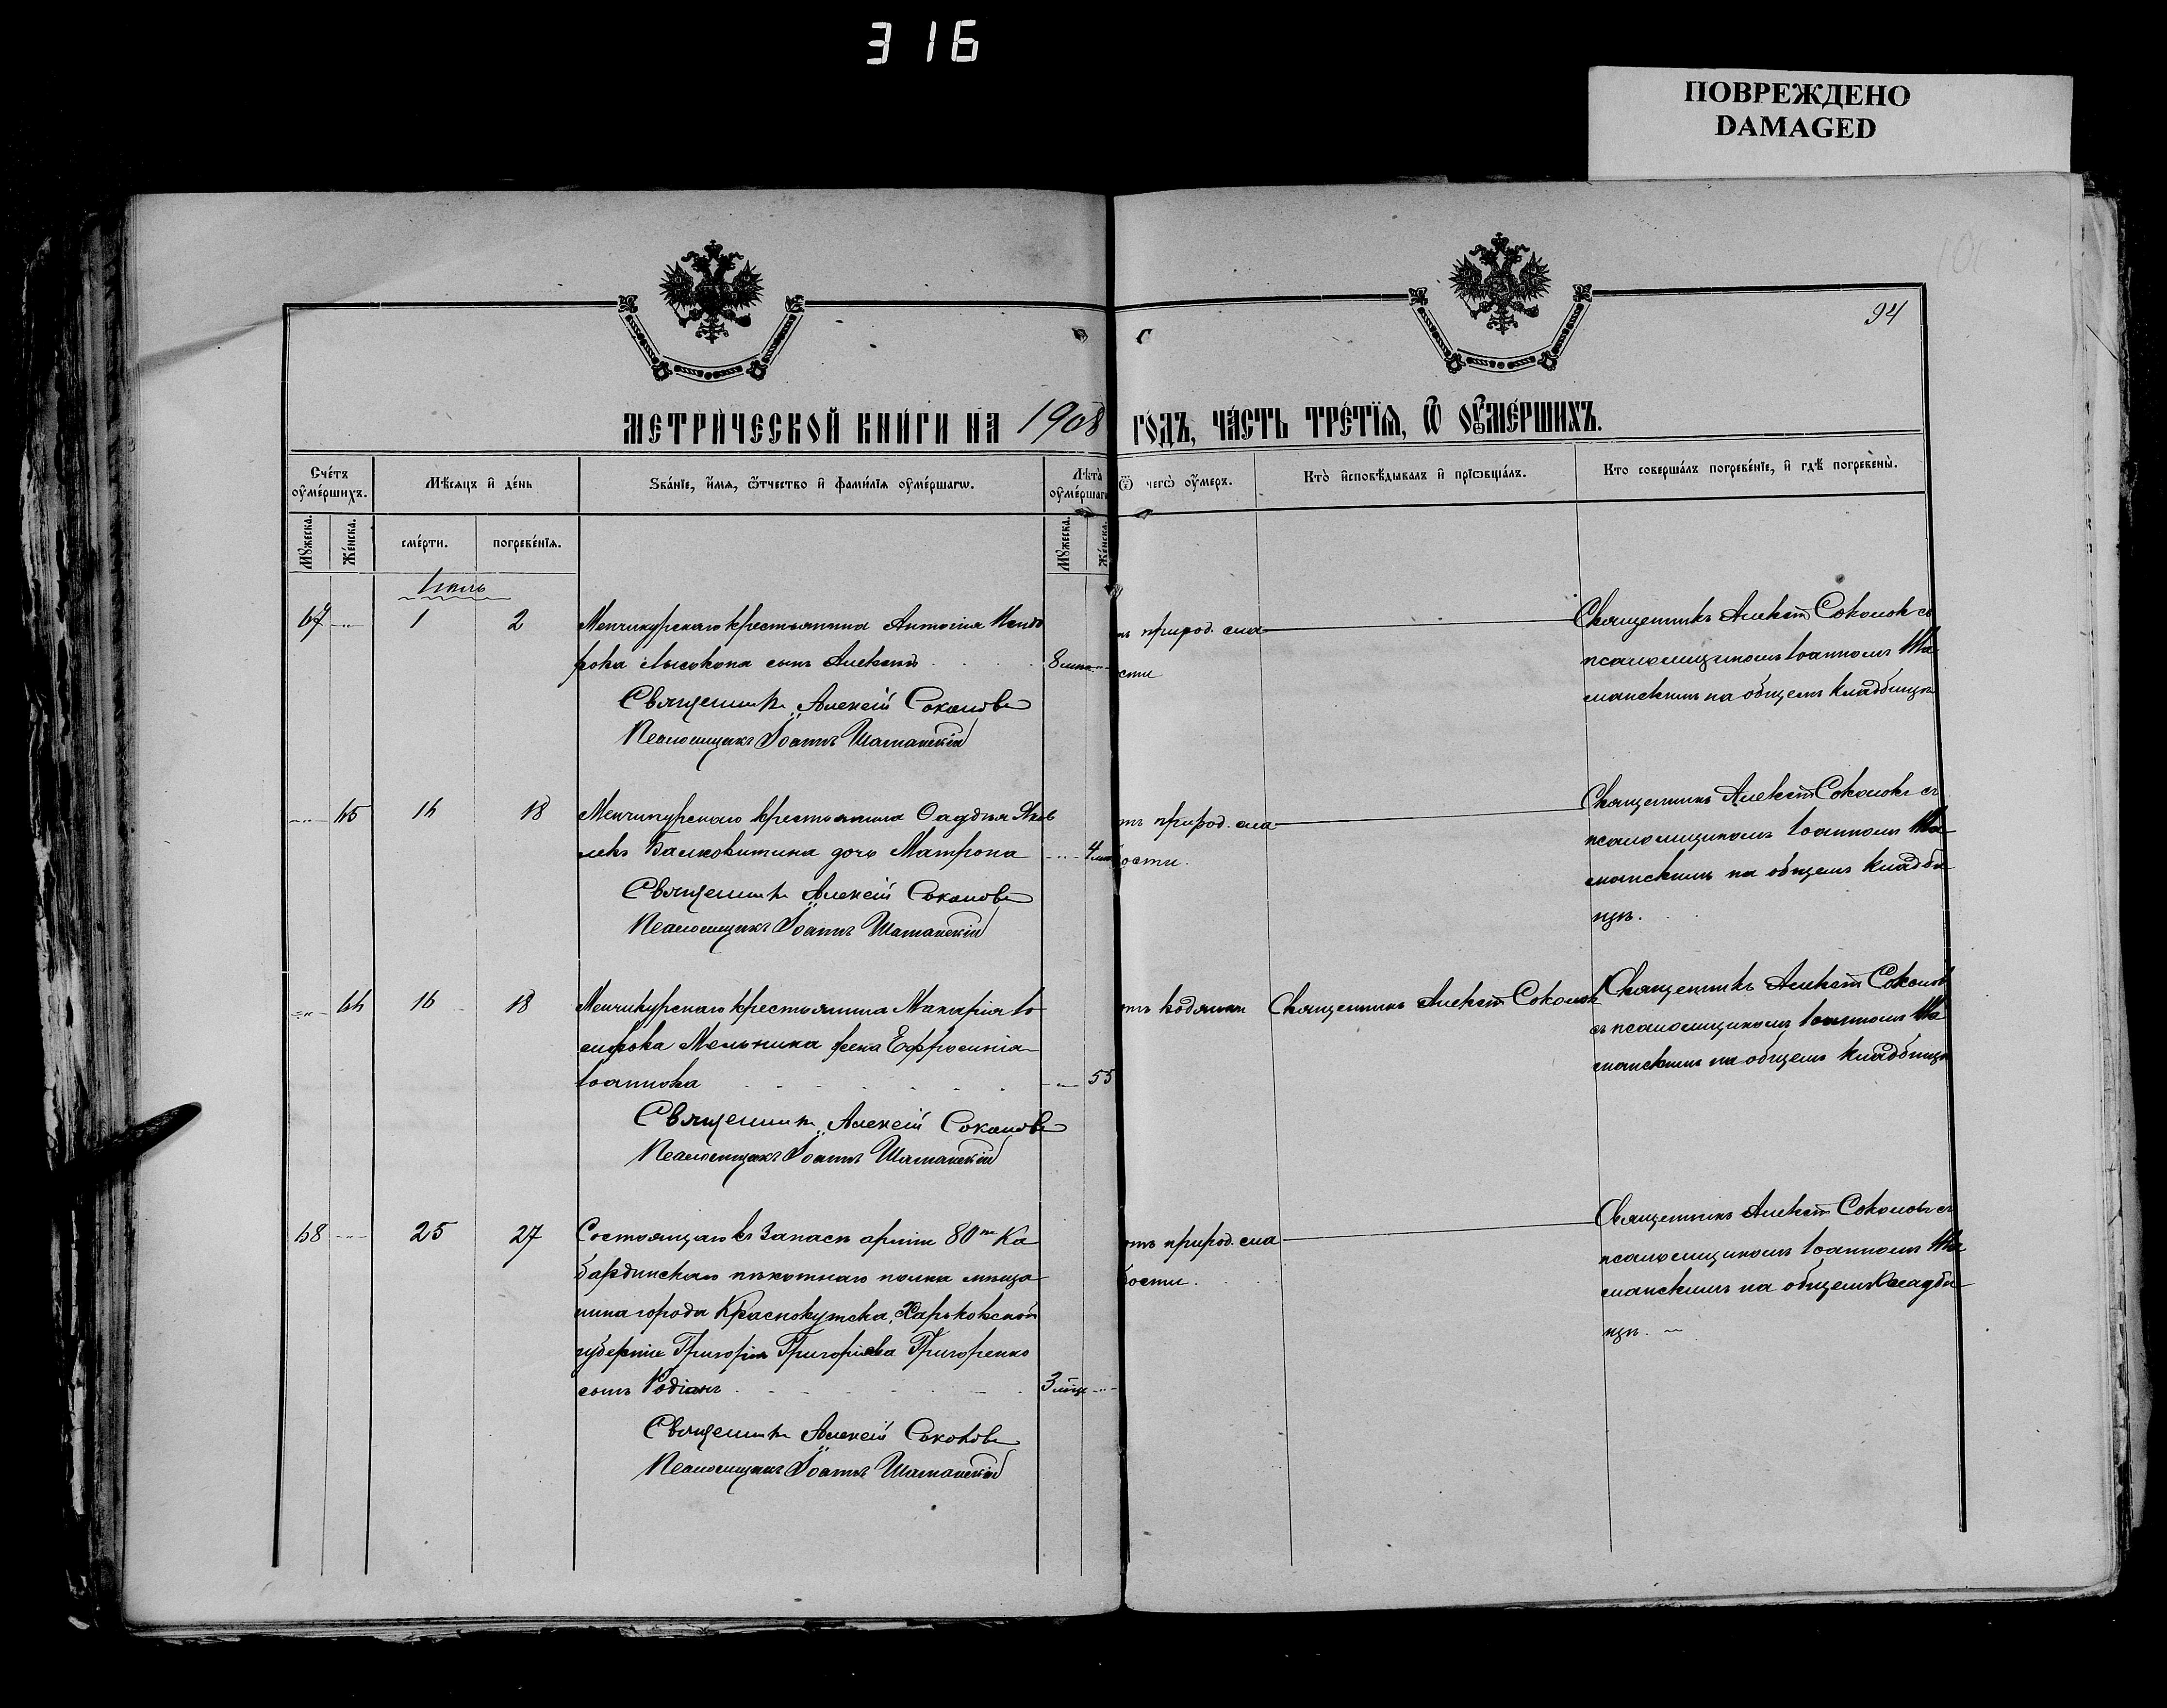 316
ПОВРЕЖДЕНО
DAMAGED
94
МЕТРИ́ЧЕСКОЙ КНИ́ГИ НА 1908 ГО́ДЪ, ЧА́СТЬ ТРЕ́ТЇѦ, Ѿ ОУ҆МЕ́РШИХЪ.
Сче́тъ оу҆ме́ршихъ.
Мѣ́сяцъ и҆ де́нь
Ѕва́нїе, и҆́мѧ, ѻ҆́тчество и҆ фами́лїѧ оу҆ме́ршагѡ.
Лѣта̀ оу҆ме́ршагѡ
Ѿ чегѡ̀ оу҆́меръ.
Кто̀ и҆сповѣ́дывалъ и҆ прїѡбща́лъ.
Кто соверша́лъ погребе́нїе, и҆ гдѣ̀ погребены̀.
Мꙋ́жеска.
Же́нска.
сме́рти.
погребе́нїѧ.
Мꙋ́жеска.
Же́нска.
Іюль
67 1 2 Менчикурскаго крестьянина Антонія
сынъ Алексѣй 8 мѣс
Священникъ Алексій Соколовъ
Псаломщикъ Іоаннъ Шаманскій
природ. сла
сти
Священникъ Алексій Соколовъ съ
псаломщикомъ Іоанномъ Ша
манскимъ на общемъ кладбищѣ
65 16 18 Менчикурскаго крестьянина Яков
дочь Матрона 4 мѣс
Священникъ Алексій Соколовъ
Псаломщикъ Іоаннъ Шаманскій
отъ природ. сла
бости.
Священникъ Алексій Соколовъ съ
псаломщикомъ Іоанномъ Ша
манскимъ на общемъ кладби
щѣ.
66 16 18 Менчикурскаго крестьянина Макарія Іо
сифова Мельника жена Ефросинія
Іоаннова 55
Священникъ Алексій Соколовъ
Псаломщикъ Іоаннъ Шаманскій
отъ водянки
Священникъ Алексій Соколовъ
Священникъ Алексій Соколовъ
съ псаломщикомъ Іоанномъ Ша
манскимъ на общемъ кладбищѣ
68 25 27 Состоящаго въ запасѣ арміи 80го Ка
бардинскаго пѣхотнаго полка мѣща
нина города Краснокутска, Харьковской
губерніи Григорія Григоріева Григоренко
сынъ Родіонъ 3
Священникъ Алексій Соколовъ
Псаломщикъ Іоаннъ Шаманскій
отъ природ. сла
бости.
Священникъ Алексій Соколовъ съ
псаломщикомъ Іоанномъ Ша
манскимъ на общемъ кладби
щѣ.